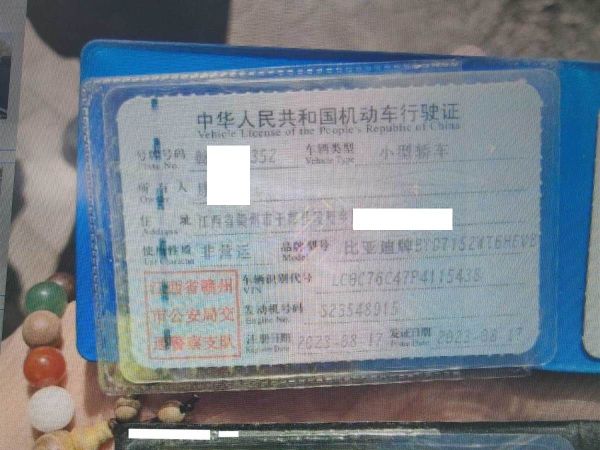 中华人民共和国机动车行驶证
Vehicle License of the People's Republic of China
号牌号码 352 车辆类型 小型轿车
Plate No. Vehicle Type
所有人
Owner
住址 江西省赣州市于都县
Address
使用性质 非营运 品牌型号 比亚迪牌BYD7152WT6HEVB
Use Character Model
江西省赣州 车辆识别代号 LC0C76C47P4115438
VIN
市公安局交 发动机号码 SZ3548915
Engine No.
通警察支队 注册日期 2023-08-17 发证日期 2023-08-17
Register Date Issue Date